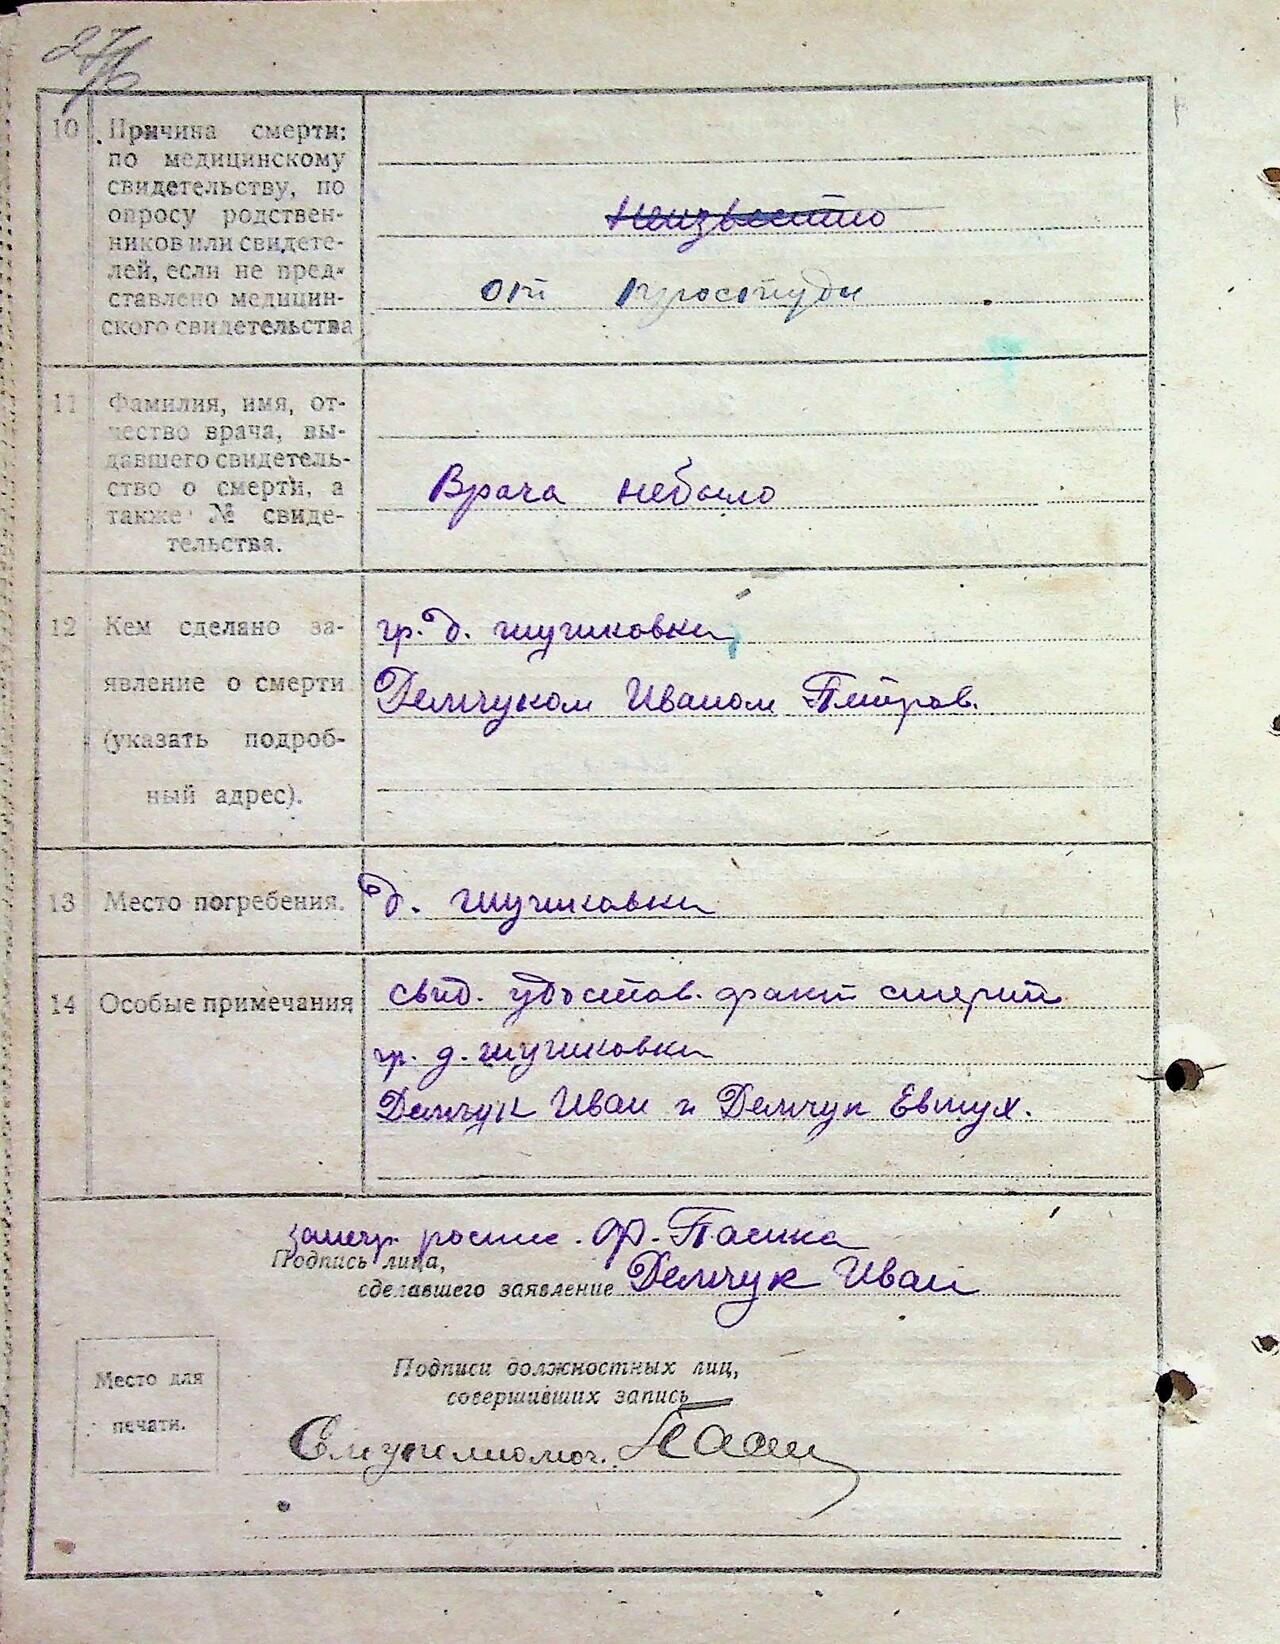 276
10 Причина смерти:
по медицинскому
свидетельству, по
опросу родствен-
ников или свидете-
лей, если не пред-
ставлено медицин-
ского свидетельства
Неизвестно
от простуды
11 Фамилия, имя, от-
чество врача, вы-
давшего свидетель-
ство о смерти, а
также № свиде-
тельства.
Врача небыло
12 Кем сделано за-
явление о смерти
(указать подроб-
ный адрес).
гр. д. шушковки
Демчуком Иваном Петров.
13 Место погребения.
д. шушковки
14 Особые примечания
свид. удостов. факт смерти
гр. д. шушковки
Демчук Иван и Демчук Евтух.
Ф. Пасика
Подпись лица,
сделавшего заявление Демчук Иван
Место для
печати.
Подписи должностных лиц,
совершивших запись